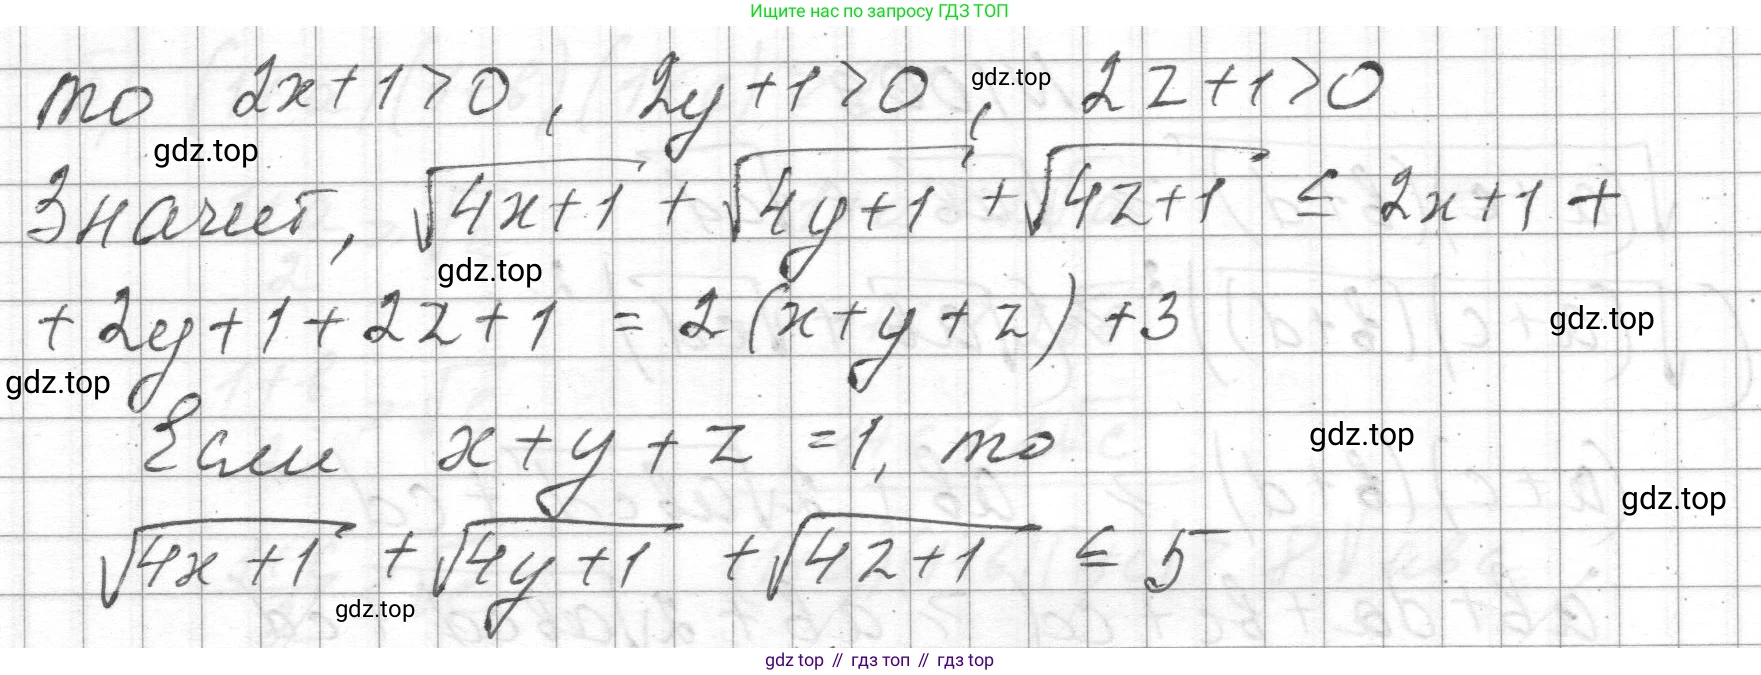 Ищите нас по запросу ГДЗ ТОП
то 2x+1>0, 2y+1>0, 2z+1>0
gdz.top
gdz.top
Значит, √(4x+1) + √(4y+1) + √(4z+1) ≤ 2x+1 +
gdz.top
+ 2y+1+2z+1 = 2(x+y+z)+3
gdz.top
gdz.top
Если x+y+z=1, то
gdz.top
gdz.top
√(4x+1) + √(4y+1) + √(4z+1) ≤ 5
gdz.top
gdz top // гдз топ // гдз top